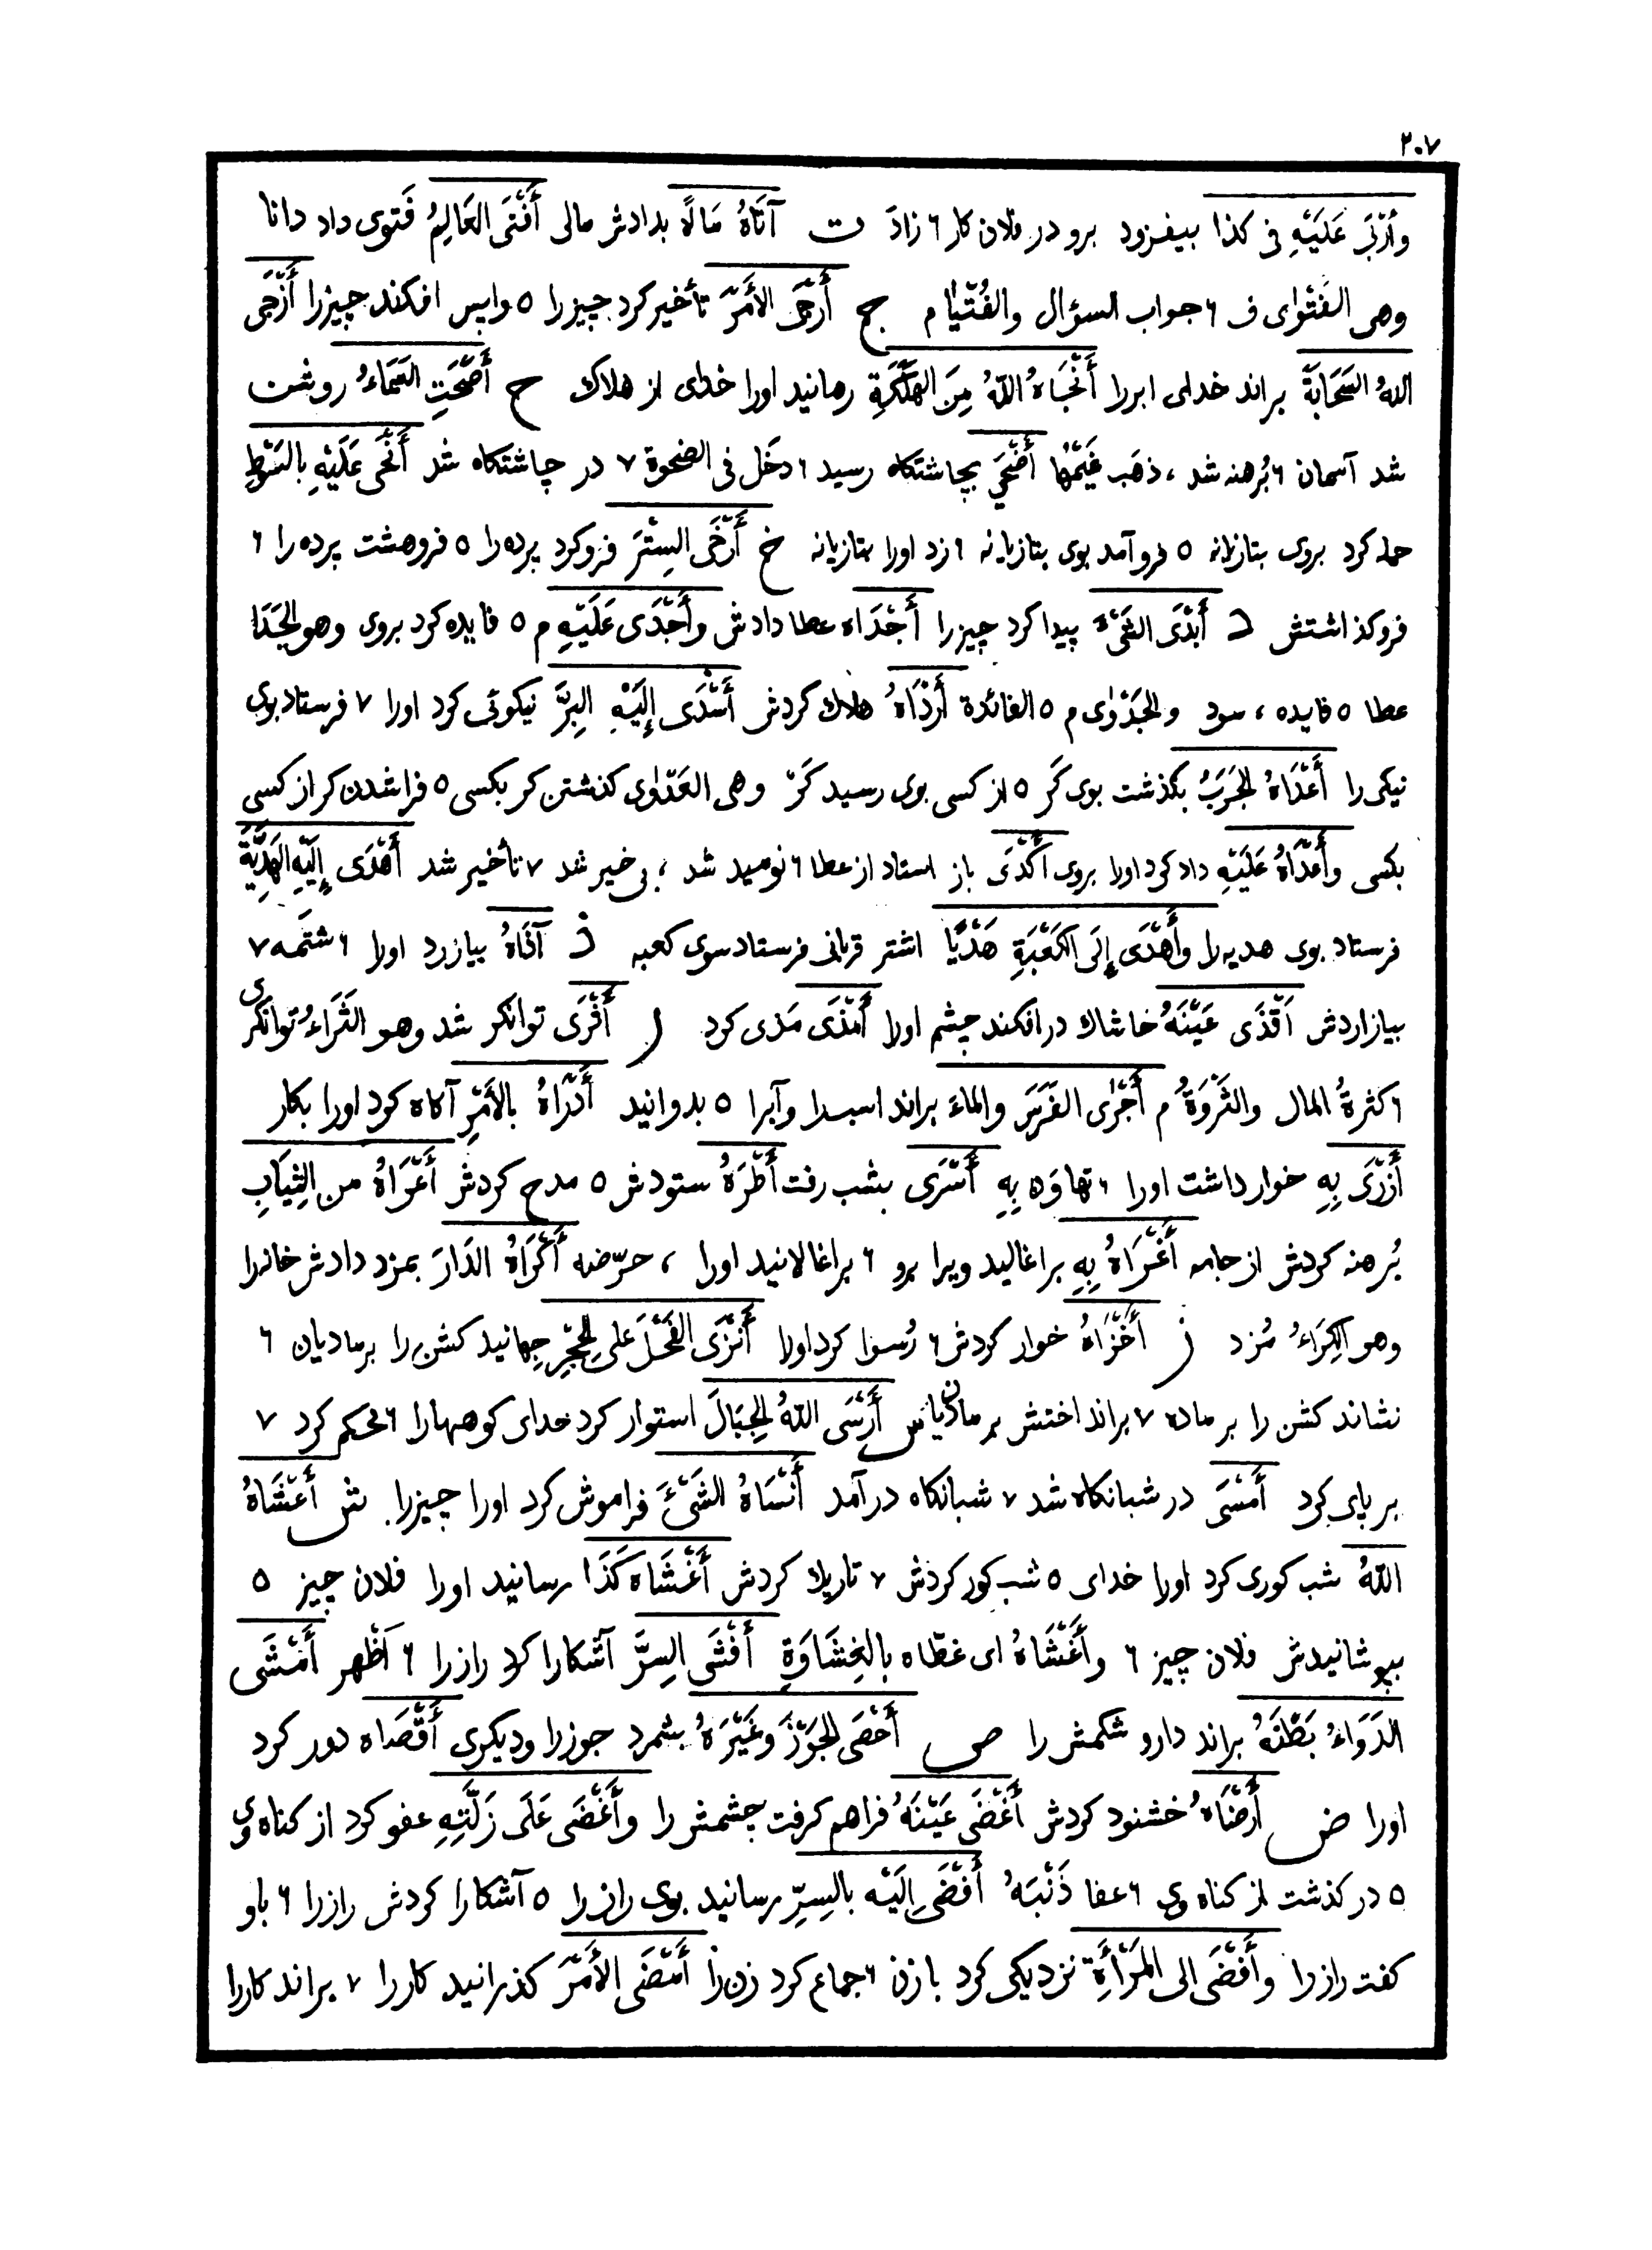 ٢٠٧
وأَرْبَى عَلَيْهِ فى كذا بيفزود برو در فلان كار ٦ زادَ ت آتَاهُ مَالًا بدادش مالى أَفْتَى العَالِمُ فَتوى داد دانا
وهى الفَتْوٰى ف ٦ جواب السؤال والفُتْيَام ج أَرْجَى الأَمْرَ تأخير كرد چيزرا ٥ واپس افكند چيزرا أَزْجَى
اللهُ السَّحَابَةَ براند خداى ابررا أَنْجَاهُ اللهُ مِنَ الهَلَكَةِ رهانيد اورا خداى از هلاك ح أَصْحَتِ السَّمَاءُ روشن
شد آسمان ٦ بُرهنه شد ، ذهَب غَيْمُها أَضْحَى بچاشتكاه رسيد ٦ دخَل فى الضحوة ٧ در چاشتكاه شد أَنْحَى عَلَيْهِ بالسَّوْطِ
حمله كرد بروى بتازيانه ٥ فرو آمد بوى بتازيانه ٦ زد اورا بتازيانه خ أَرْخَى السِتْرَ فروكرد پرده را ٥ فروهشت پرده را ٦
فروكذاشتش د أَبْدَى الشَىْءَ پيدا كرد چيزرا أَجْدَاه عطا دادش وأَجْدَى عَلَيْهِ م ٥ فايده كرد بروى وهو الجَدَا
عطا ٥ فايده ، سود والجَدْوٰى م ٥ الفائدة أَرْدَاهُ هلاك كردش أَسْدَى إِلَيْهِ البِرَّ نيكوئى كرد اورا ٧ فرستاد بوى
نيكى را أَعْدَاهُ الجَرَبُ بكذشت بوى كَر ٥ از كسى بوى رسيد كَرْ وهى العَدْوٰى كذشتن كر بكسى ٥ فراشدن كر از كسى
بكسى وأَعْدَاهُ عَلَيْهِ داد كرد اورا بروى أَكْدَى باز استاد از عطا ٦ نوميد شد ، بى خير شد ٧ تأخير شد أَهْدَى إِلَيْهِ الهَدِيَّةَ
فرستاد بوى هديه را وأَهْدَى إِلَى الكَعْبَةِ هَدْيًا اشتر قربانى فرستاد سوى كعبه ذ آذَاهُ بيازرد اورا ٦ شتَمه ٧
بيازاردش أَقْذَى عَيْنَهُ خاشاك درافكند چشم اورا أَمْذَى مَذى كرد ر أَثْرَى توانكر شد وهو الثَرَاءُ توانكرى
٦ كثرةُ المال والثَرْوَةُ م أَجْرٰى الفَرَسَ والماءَ براند اسبرا وآبرا ٥ بدوانيد أَدْرَاهُ بالأَمْرِ آكاه كرد اورا بكار
أَزْرَى بِهِ خوار داشت اورا ٦ تهاوَن بِهِ أَسْرَى بشب رفت أَطْرَهُ ستودش ٥ مدح كردش أَعْرَاهُ من الثِيَابِ
بُرهنه كردش از جامه أَغْرَاهُ بِهِ براغاليد ويرا برو ٦ براغالانيد اورا ، حرّضه أَكْرَاهُ الدَارَ بمزد دادش خانرا
وهو الكِرَاءُ مُزد ز أَخْزَاهُ خوار كردش ٦ رُسوا كرد اورا أَنْزَى الفَحْلَ عَلى الحِجْرِ جهانيد كشن را بر ماديان ٦
نشاند كشن را بر ماده ٧ براند اختش بر ماديان س أَرْسَى اللهُ الجِبَالَ استوار كرد خداى كوهها را ٦ محكم كرد ٧
بر پاى كرد أَمْسَى در شبانكاه شد ٧ شبانكاه درآمد أَنْسَاهُ الشَىْءَ فراموش كرد اورا چيزرا ش أَعْشَاهُ
اللهُ شب كورى كرد اورا خداى ٥ شب كور كردش ٧ تاريك كردش أَغْشَاه كَذَا رسانيد اورا فلان چيز ٥
بپوشانيدش فلان چيز ٦ وأَغْشَاهُ اى غطّاه بالغِشَاوَةِ أَفْشَى السِرَّ آشكارا كرد رازرا ٦ أَظْهر أَمْشَى
الدَوَاءُ بَطْنَهُ براند دارو شكمش را ص أَحْصَى الجَوْزَ وغَيْرَهُ بشمرد جوزرا وديكرى أَقْصَاه دور كرد
اورا ض أَرْضَاهُ خشنود كردش أَغْضَى عَيْنَهُ فراهم كرفت چشمش را وأَغْضَى عَلَى زَلَّتِهِ عفو كرد از كناه وى
٥ در كذشت از كناه وى ٦ عفا ذَنْبَهُ أَفْضَى إِلَيْه بالسِرِّ رسانيد بوى راز را ٥ آشكارا كردش رازرا ٦ باو
كفت رازرا وأَفْضَى الى المَرْأَةِ نزديكى كرد با زن ٦ جماع كرد زن را أَمْضَى الأَمْرَ كذرانيد كاررا ٧ براند كاررا